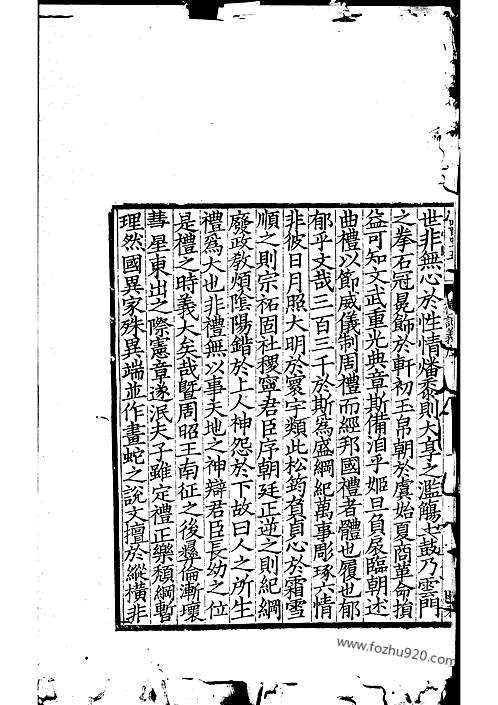 世非無心於性情燔黍則大享之濫觴土鼓乃雲門
之拳石冠冕飾於軒初玉帛朝於虞始夏商革命損
益可知文武重光典章斯備洎乎姬旦負扆臨朝述
曲禮以節威儀制周禮而經邦國禮者體也履也郁
郁乎文哉三百三千於斯為盛綱紀萬事彫琢六情
非彼日月照大明於寰宇類此松筠負貞心於霜雪
順之則宗祏固社稷寧君臣序朝廷正逆之則紀綱
廢政教煩陰陽錯於上人神怨於下故曰人之所生
禮為大也非禮無以事天地之神辯君臣長幼之位
是禮之時義大矣哉暨周昭王南征之後彝倫漸壞
彗星東出之際憲章遂泯夫子雖定禮正樂頹綱暫
理然國異家殊異端並作畫蛇之說文擅於縱橫非
www.fozhu920.com